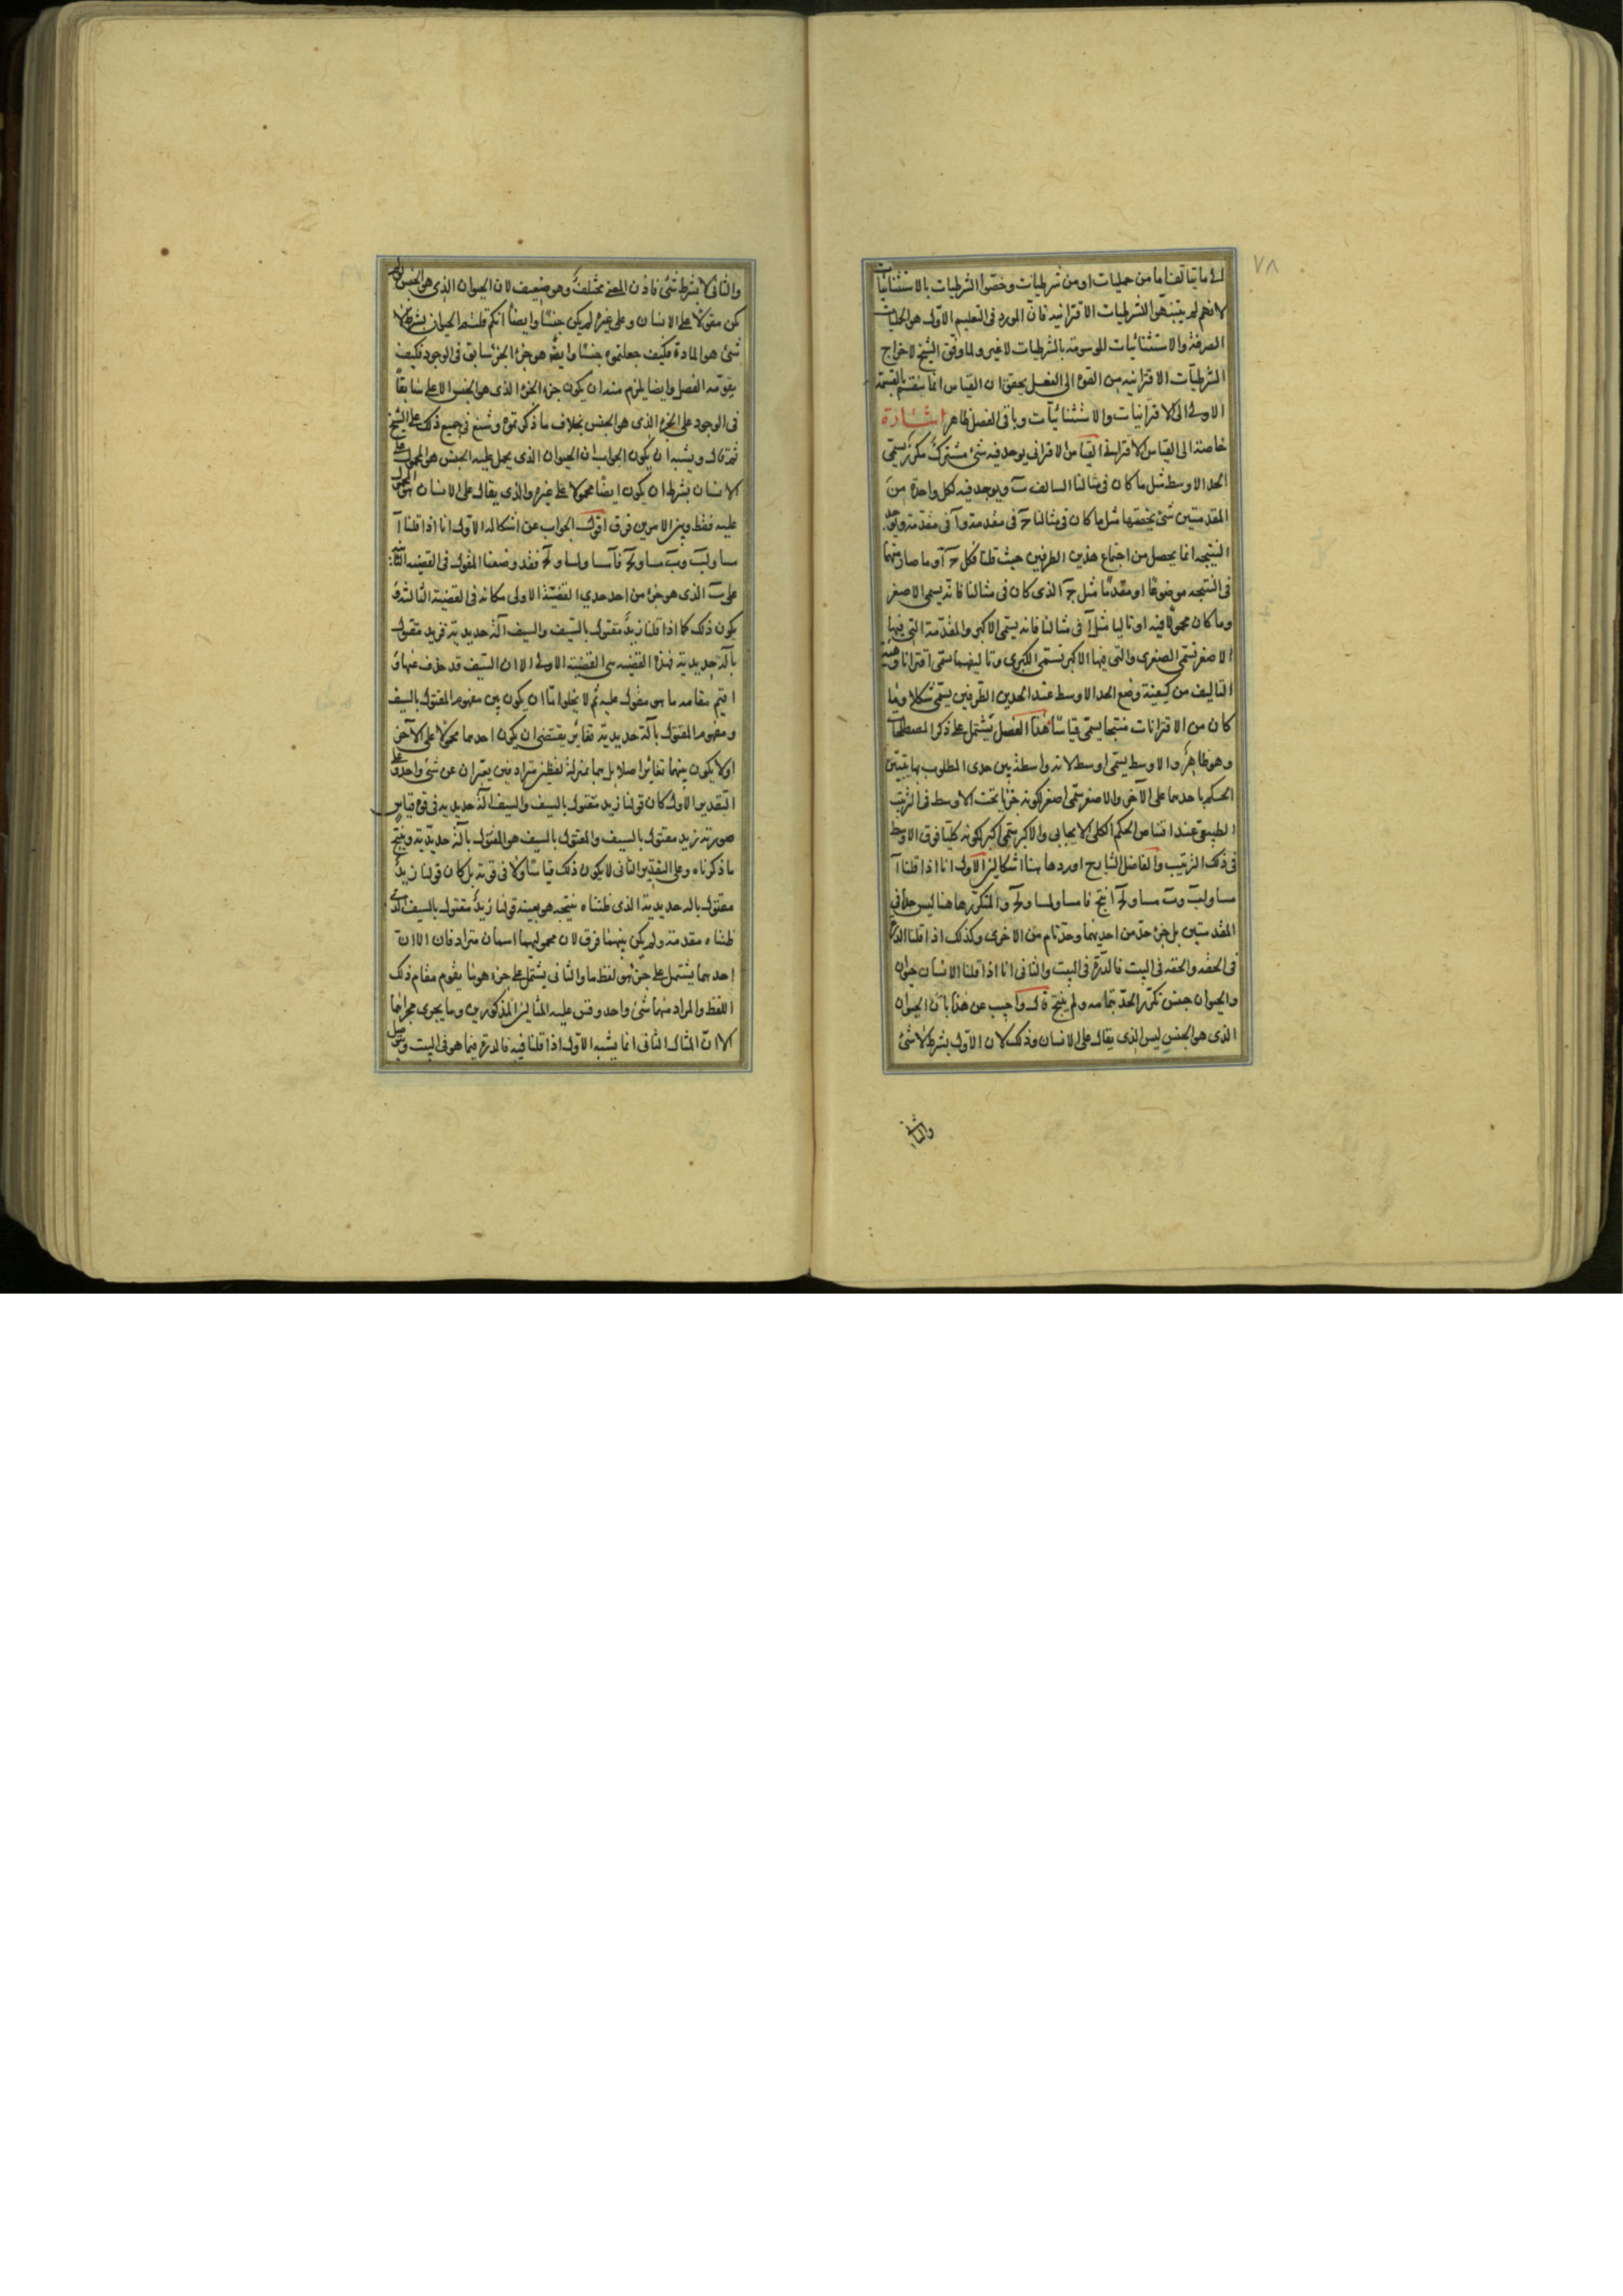 ٧٨
الى ما يتالف اما من حمليات او من شرطيات وخصوا الشرطيات بالاستثنائيات
لانهم لم يتنبهوا للشرطيات الاقترانيه فان المورد فى التعليم الاول هو الحمليات
الصرفة والاستثنائيات الموسومة بالشرطيات لا غير ولما وفق الشيخ لاخراج
الشرطيات الاقترانيه من القوة الى الفعل تحقق ان القياس انما ينقسم بالقسمة
الاولى الى الاقترانيات والاستثنائيات وباقى الفصل ظاهر اشارة
خاصة الى القياس الاقترانى القياس الاقترانى يوجد فيه شئ مشترك مكرر يسمى
الحد الاوسط مثل ما كان فى مثالنا السالف ب ويوجد فيه لكل واحدة من
المقدمتين شئ يخصها مثل ما كان فى مثالنا ج فى مقدمة وآ فى مقدمة ويوجد
النتيجه انما يحصل من اجتماع هذين الطرفين حيث قلنا فكل ج آ وما صار منهما
فى النتيجه موضوعا او مقدما مثل ج الذى كان فى مثالنا فانه يسمى الاصغر
وما كان محمولا فيه او تاليا مثل آ فى مثالنا فانه يسمى الاكبر والمقدمة التى فيها
الاصغر تسمى الصغرى والتى فيها الاكبر تسمى الكبرى وتاليفهما يسمى اقترانا وهيئة
التاليف من كيفية وضع الحد الاوسط عند الحدين الطرفين يسمى شكلا وما
كان من الاقترانات منتجا يسمى قياسا هذا الفصل يشتمل على ذكر المصطلحات
وهو ظاهر والاوسط يسمى اوسط لانه واسطة بين حدى المطلوب بها يتبين
الحكم باحدهما على الآخر والاصغر سمى اصغر لكونه جزئيا تحت الاوسط فى الترتيب
الطبيعى عند اقتناص الحكم الكلى الايجابى والاكبر سمى اكبر لكونه كليا فوق الاوسط
فى ذلك الترتيب والفاضل الشارح اورد هاهنا اشكالين الاول انا اذا قلنا آ
مساو لب وب مساو لج آ نتج فا مساو لمساو لج والمتكرر هاهنا ليس حدا فى
المقدمتين بل جزء حد من احديهما وحد تام من الاخرى وكذلك اذا قلنا الدرة
فى الحقه والحقه فى البيت فالدرة فى البيت والثانى انا اذا قلنا الانسان حيوان
والحيوان جنس تكرر الحد بتمامه ولم ينتج قال واجيب عن هذا بان الحيوان
الذى هو الجنس ليس الذى يقال على الانسان وذلك لان الاول بشرط لا شئ
والثانى
والثانى لا بشرط شئ فاذن المعنى مختلف وهو ضعيف لان الحيوان الذى هو الجنس لو لم
يكن مقولا على الانسان وعلى غيره لم يكن جنسا وايضا انكم قلتم الحيوان بشرط لا
شئ هو المادة فكيف جعلتموه جنسا وايضا هو جزء والجزء سابق فى الوجود فكيف
يقومه الفصل وايضا يلزم منه ان يكون جزء الجزء الذى هو الجنس الاعلى سابقا
فى الوجود على الجزء الذى هو الجنس بخلاف ما ذكرتموه وشنع فى جميع ذلك على الشيخ
ثم قال ويشبه ان يكون الجواب ان الحيوان الذى يحمل عليه الجنس هو المحمول على
الانسان بشرط ان يكون ايضا محمولا على غيره والذى يقال على الانسان هو المحمول
عليه فقط وبين الامرين فرق اقول الجواب عن اشكاله الاول انا اذا قلنا آ
مساو لب وب مساو لج فآ مساو لمساو لج فقد وضعنا المقول فى القضيه الثانيه
على ب الذى هو جزء من احد حدى القضية الاولى مكانه فى القضية الثالثة و
يكون ذلك كما اذا قلنا زيد مقتول بالسيف والسيف آلة حديدية فزيد مقتول
بآلة حديدية فهذه القضيه هى القضية الاولى الا ان السيف قد حذف عنها و
اقيم مقامه ما هو مقول عليه ثم لا يخلو اما ان يكون بين مفهوم المقتول بالسيف
ومفهوم المقتول بآلة حديدية تغاير يقتضى ان يكون احدهما محمولا على الآخر
او لا يكون بينهما تغاير اصلا بل هما بمنزلة لفظين مترادفين يعبران عن شئ واحد وعلى
التقدير الاول كان قولنا زيد مقتول بالسيف والسيف آلة حديديه فى قوة قياس
صورته زيد مقتول بالسيف والمقتول بالسيف هو المقتول بآلة حديدية وينتج
ما ذكرناه وعلى التقدير الثانى لا يكون ذلك قياسا ولا فى قوته بل كان قولنا زيد
مقتول باله حديدية الذى ظنناه نتيجه هو بعينه قولنا زيد مقتول بالسيف الذى
ظنناه مقدمة ولم يكن بينهما فرق لان محموليهما اسمان مترادفان الا ان
احدهما يشتمل على جزء هو لفظ ما والثانى يشتمل على جزء هو ما يقوم مقام ذلك
اللفظ والمراد منهما شئ واحد وقس عليه المثالين المذكورين وما يجرى مجراهما
الا ان المثال الثانى انما يشبه الاول اذا قلنا فيه فالدرة فيما هو فى البيت